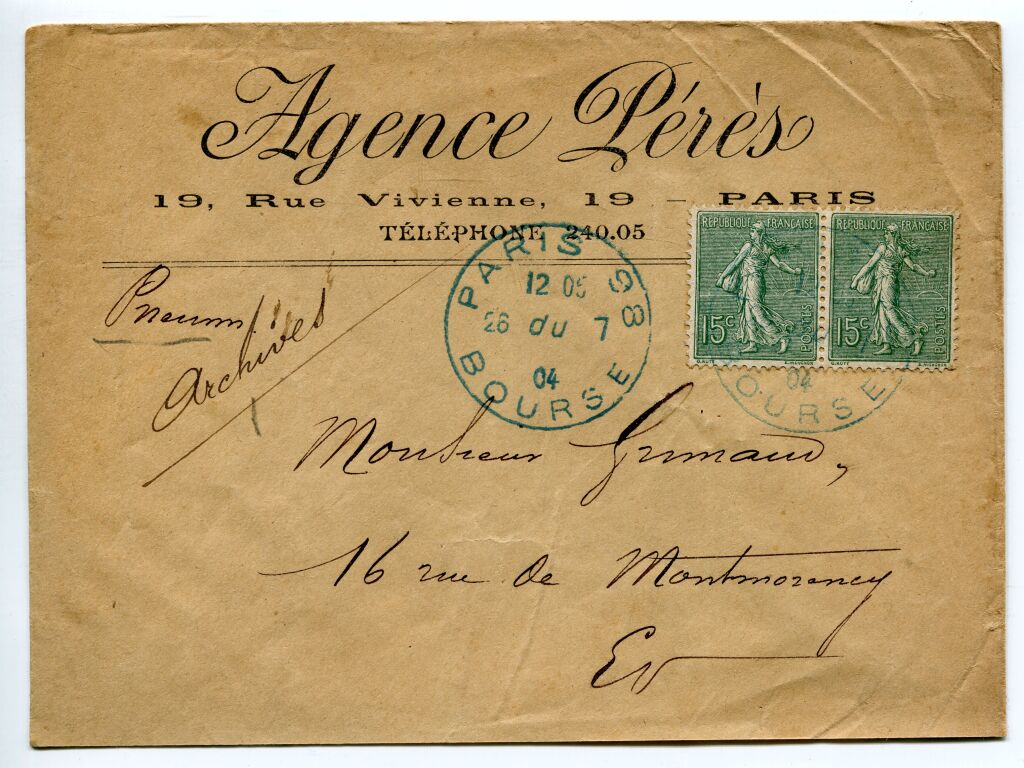 Agence Pérès
19, Rue Vivienne, 19 - PARIS
TÉLÉPHONE 240.05
RÉPUBLIQUE FRANÇAISE
15c POSTES
RÉPUBLIQUE FRANÇAISE
15c POSTES
PARIS 98
12 05
26 du 7
04
BOURSE
04
OURSE
Pneum
Archives
Monsieur Grimaud,
16 rue de Montmorency
EV